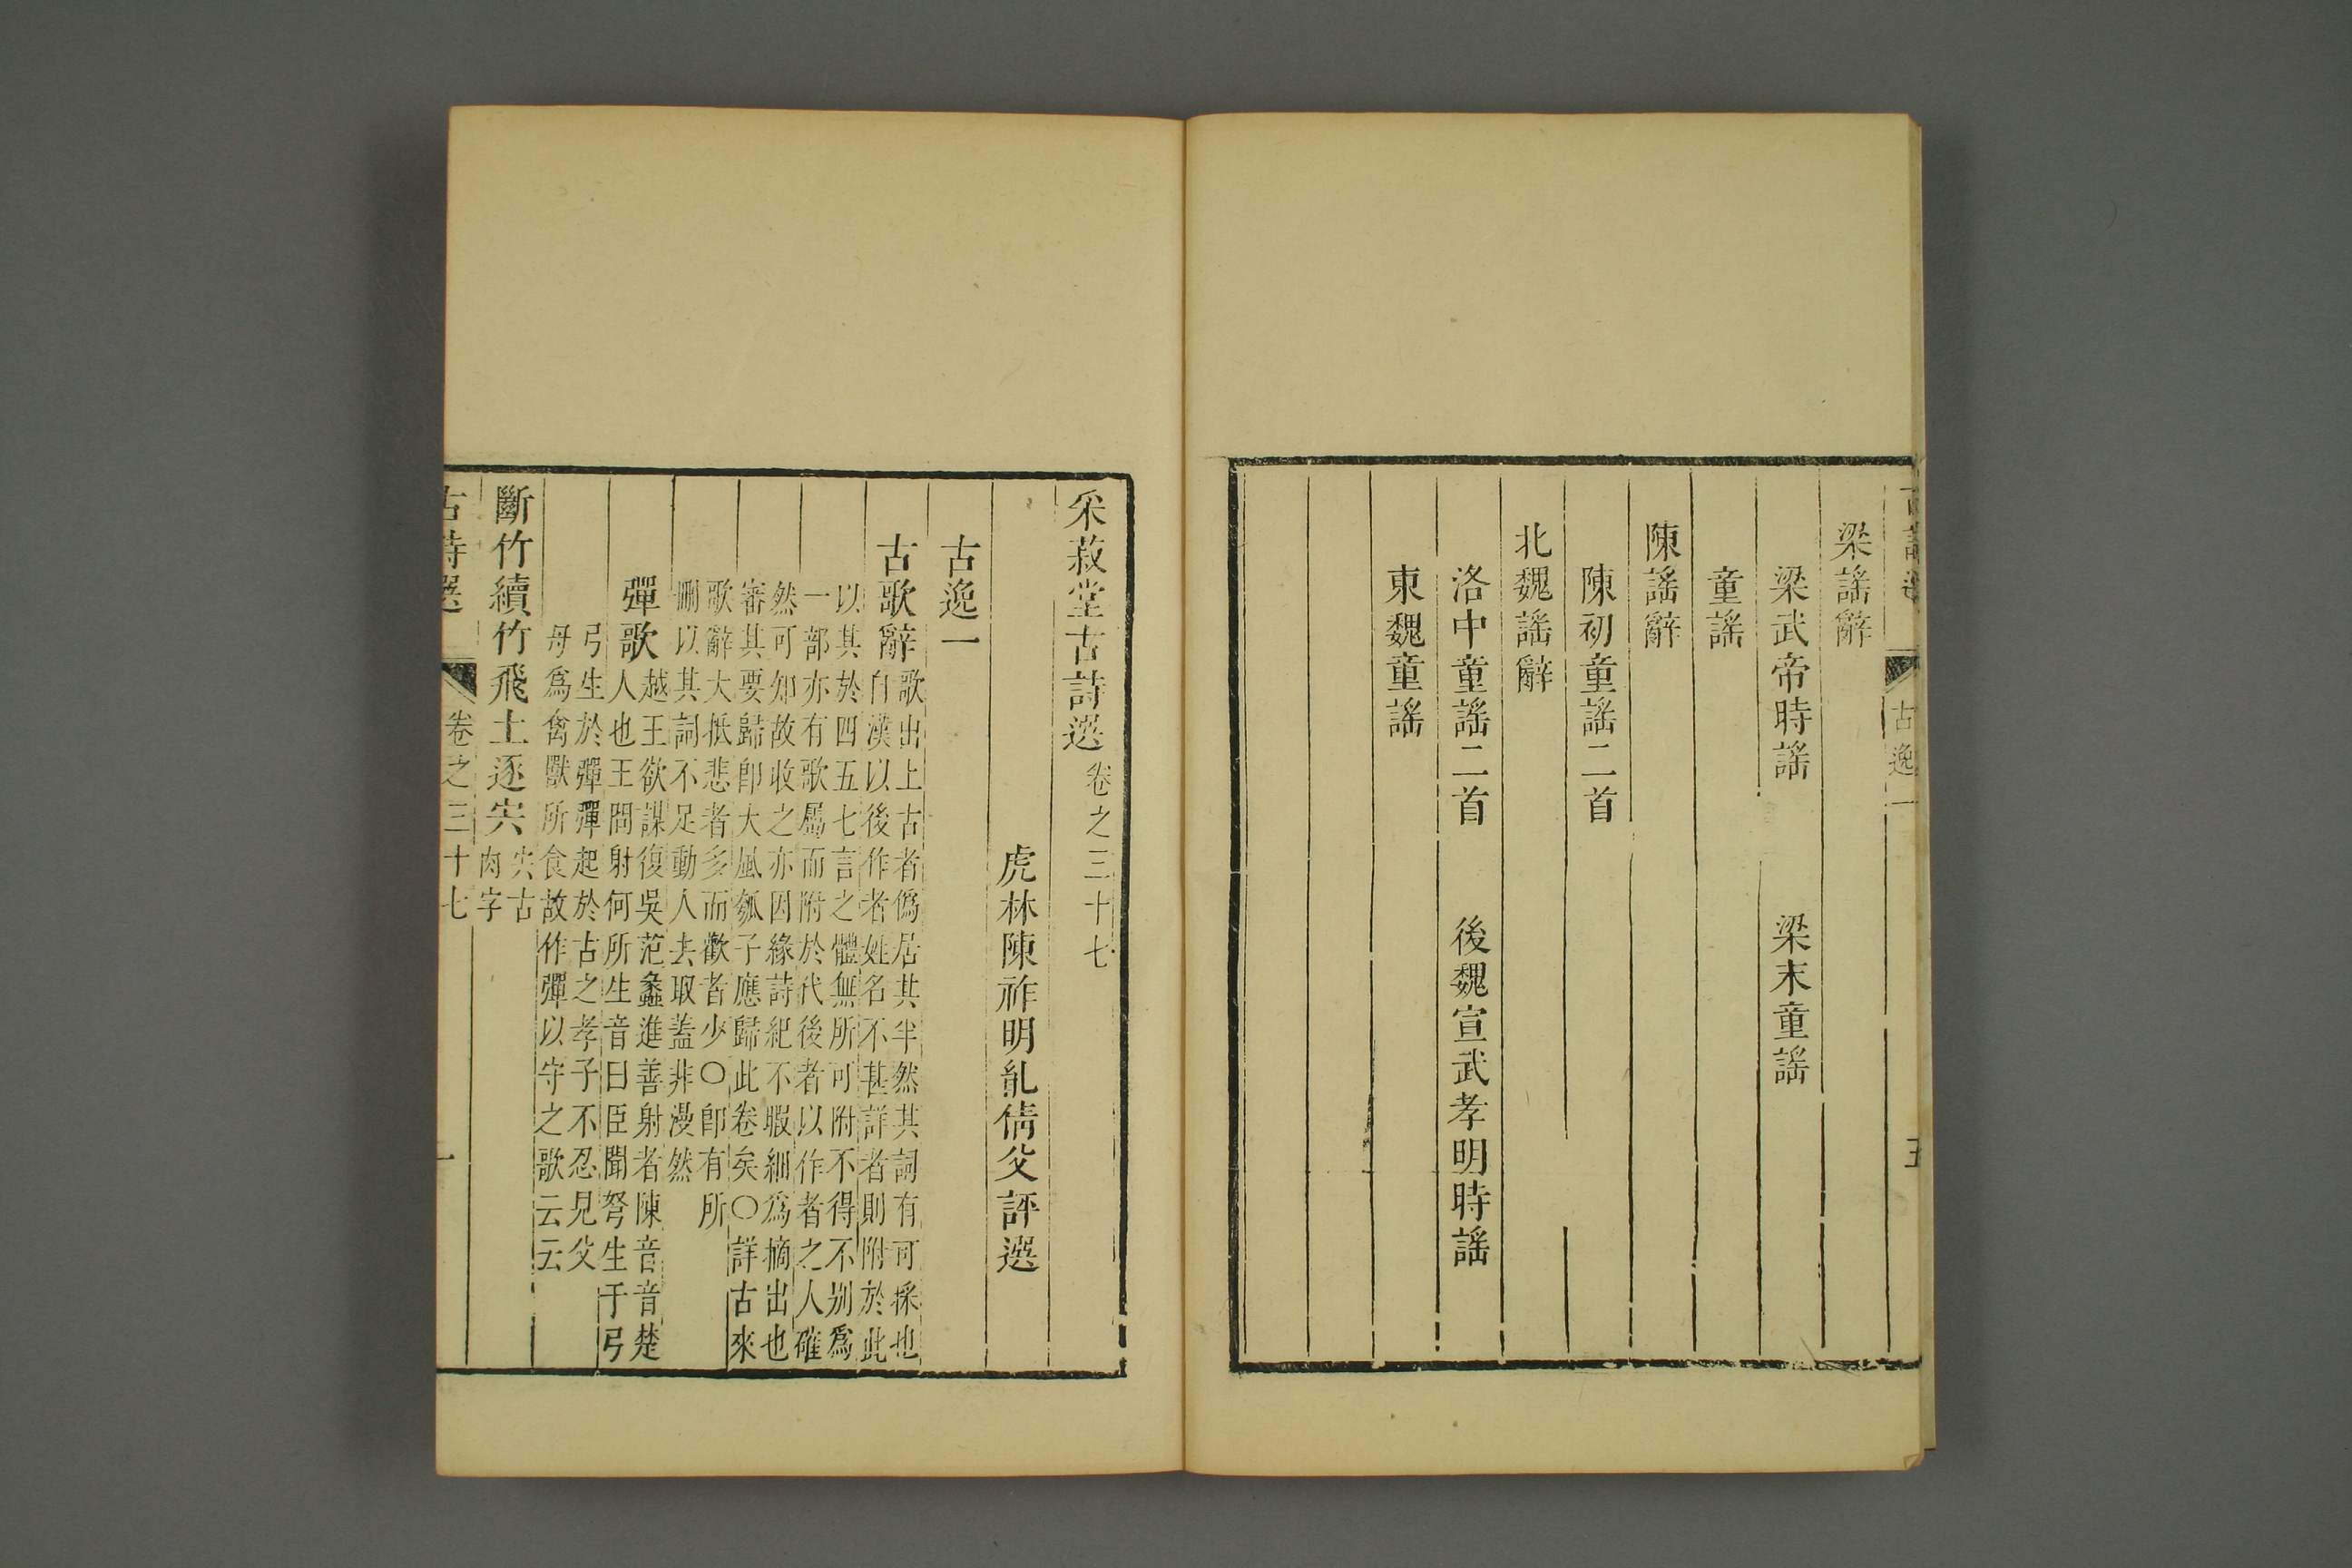 古詩選 古逸一 五
梁謠辭
梁武帝時謠 梁末童謠
童謠
陳謠辭
陳初童謠二首
北魏謠辭
洛中童謠二首 後魏宣武孝明時謠
東魏童謠
采菽堂古詩選 卷之三十七
虎林陳祚明胤倩父評選
古逸一
古歌辭 歌出上古者僞居其半然其詞有可採也
自漢以後作者姓名不甚詳者則附於此
以其於四五七言之體無所可附不得不别爲
一部亦有歌屬而附於代後者以作者之人確
然可知故收之亦因緣詩紀不暇細爲摘出也
審其要歸卽大風瓠子應歸此卷矣○詳古來
歌辭大抵悲者多而歡者少○卽有所
刪以其詞不足動人去取蓋非漫然
彈歌 越王欲謀復吳范蠡進善射者陳音音楚
人也王問射何所生音曰臣聞弩生于弓
弓生於彈彈起於古之孝子不忍見父
母爲禽獸所食故作彈以守之歌云云
斷竹續竹飛土逐宍 宍古
肉字
古詩選 卷之三十七 一